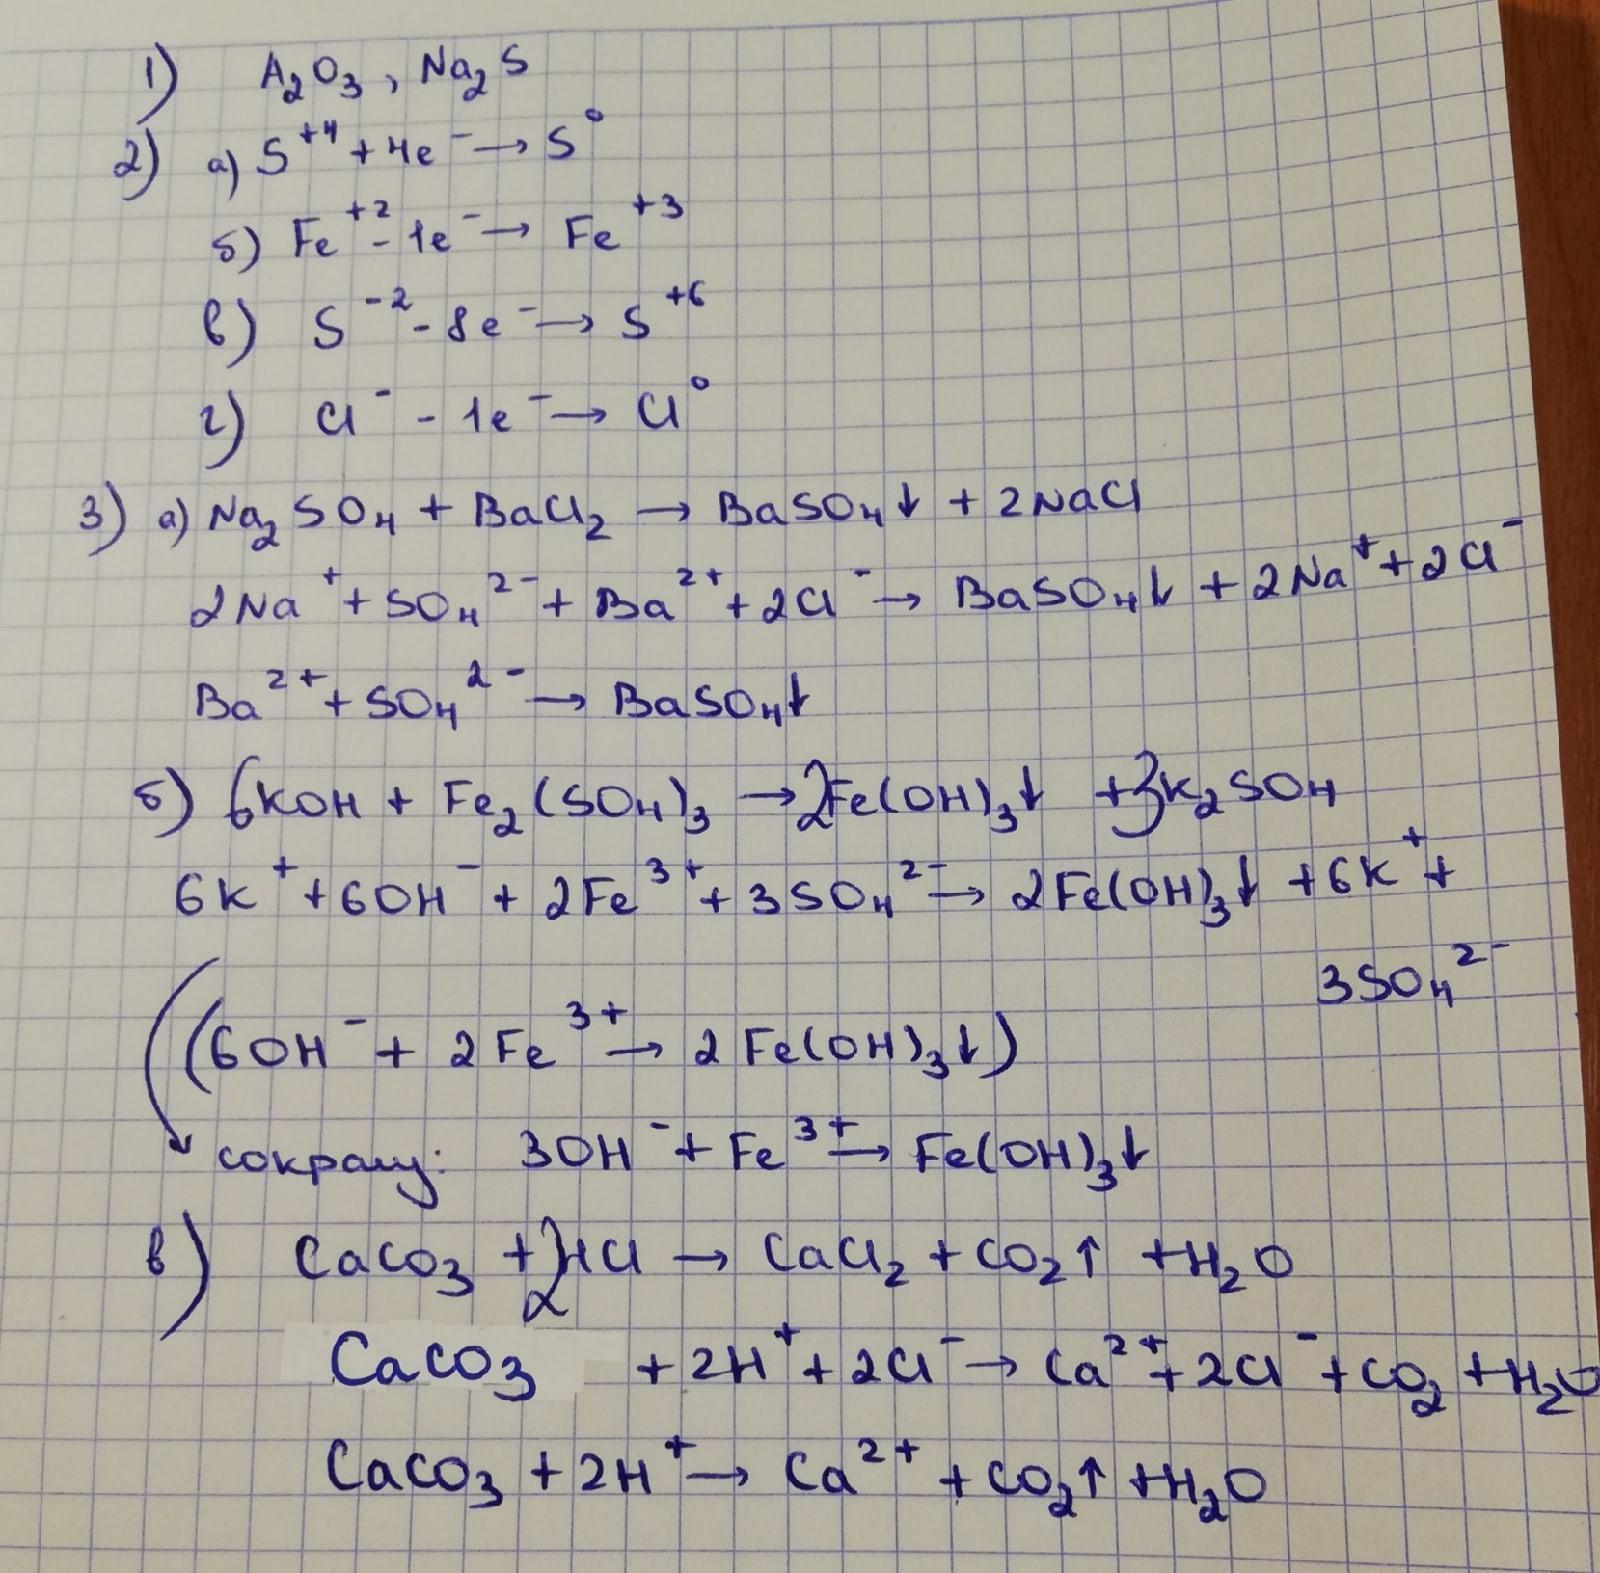 1) A₂O₃, Na₂S
2) а) S⁺⁴ + 4e⁻ → S⁰
б) Fe⁺² - 1e⁻ → Fe⁺³
в) S⁻² - 8e⁻ → S⁺⁶
г) Cl⁻ - 1e⁻ → Cl⁰
3) а) Na₂SO₄ + BaCl₂ → BaSO₄↓ + 2NaCl
2Na⁺ + SO₄²⁻ + Ba²⁺ + 2Cl⁻ → BaSO₄↓ + 2Na⁺ + 2Cl⁻
Ba²⁺ + SO₄²⁻ → BaSO₄↓
б) 6KOH + Fe₂(SO₄)₃ → 2Fe(OH)₃↓ + 3K₂SO₄
6K⁺ + 6OH⁻ + 2Fe³⁺ + 3SO₄²⁻ → 2Fe(OH)₃↓ + 6K⁺ +
3SO₄²⁻
(6OH⁻ + 2Fe³⁺ → 2Fe(OH)₃↓)
сокращ: 3OH⁻ + Fe³⁺ → Fe(OH)₃↓
в) CaCO₃ + 2HCl → CaCl₂ + CO₂↑ + H₂O
CaCO₃ + 2H⁺ + 2Cl⁻ → Ca²⁺ + 2Cl⁻ + CO₂ + H₂O
CaCO₃ + 2H⁺ → Ca²⁺ + CO₂↑ + H₂O